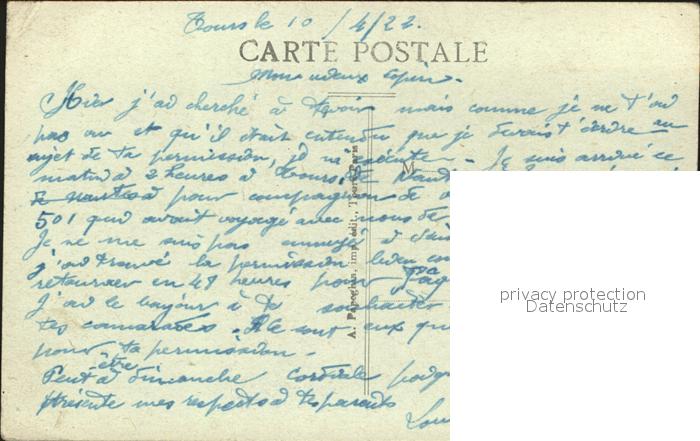 Tours le 10/4/22.
CARTE POSTALE
Mon vieux copain.
Hier j'ai cherché à te voir mais comme je ne t'ai
pas vu et qu'il était entendu que je devais t'écrire au
sujet de ta permission, je m'exécute. Je suis arrivé ce
matin à 2 heures à Tours, de
à pour compagnon de
501 qui avait voyagé avec nous de
Je ne me suis pas ennuyé à
j'ai trouvé la permission bien
retourner en 48 heures pour
J'ai le bonjour à te souhaiter
tes camarades. Ils sont eux
pour ta permission.
Peut être à dimanche cordiale
présente mes respects à tes parents
A. Papeghin, imp. édit., Tours Paris
M
privacy protection
Datenschutz